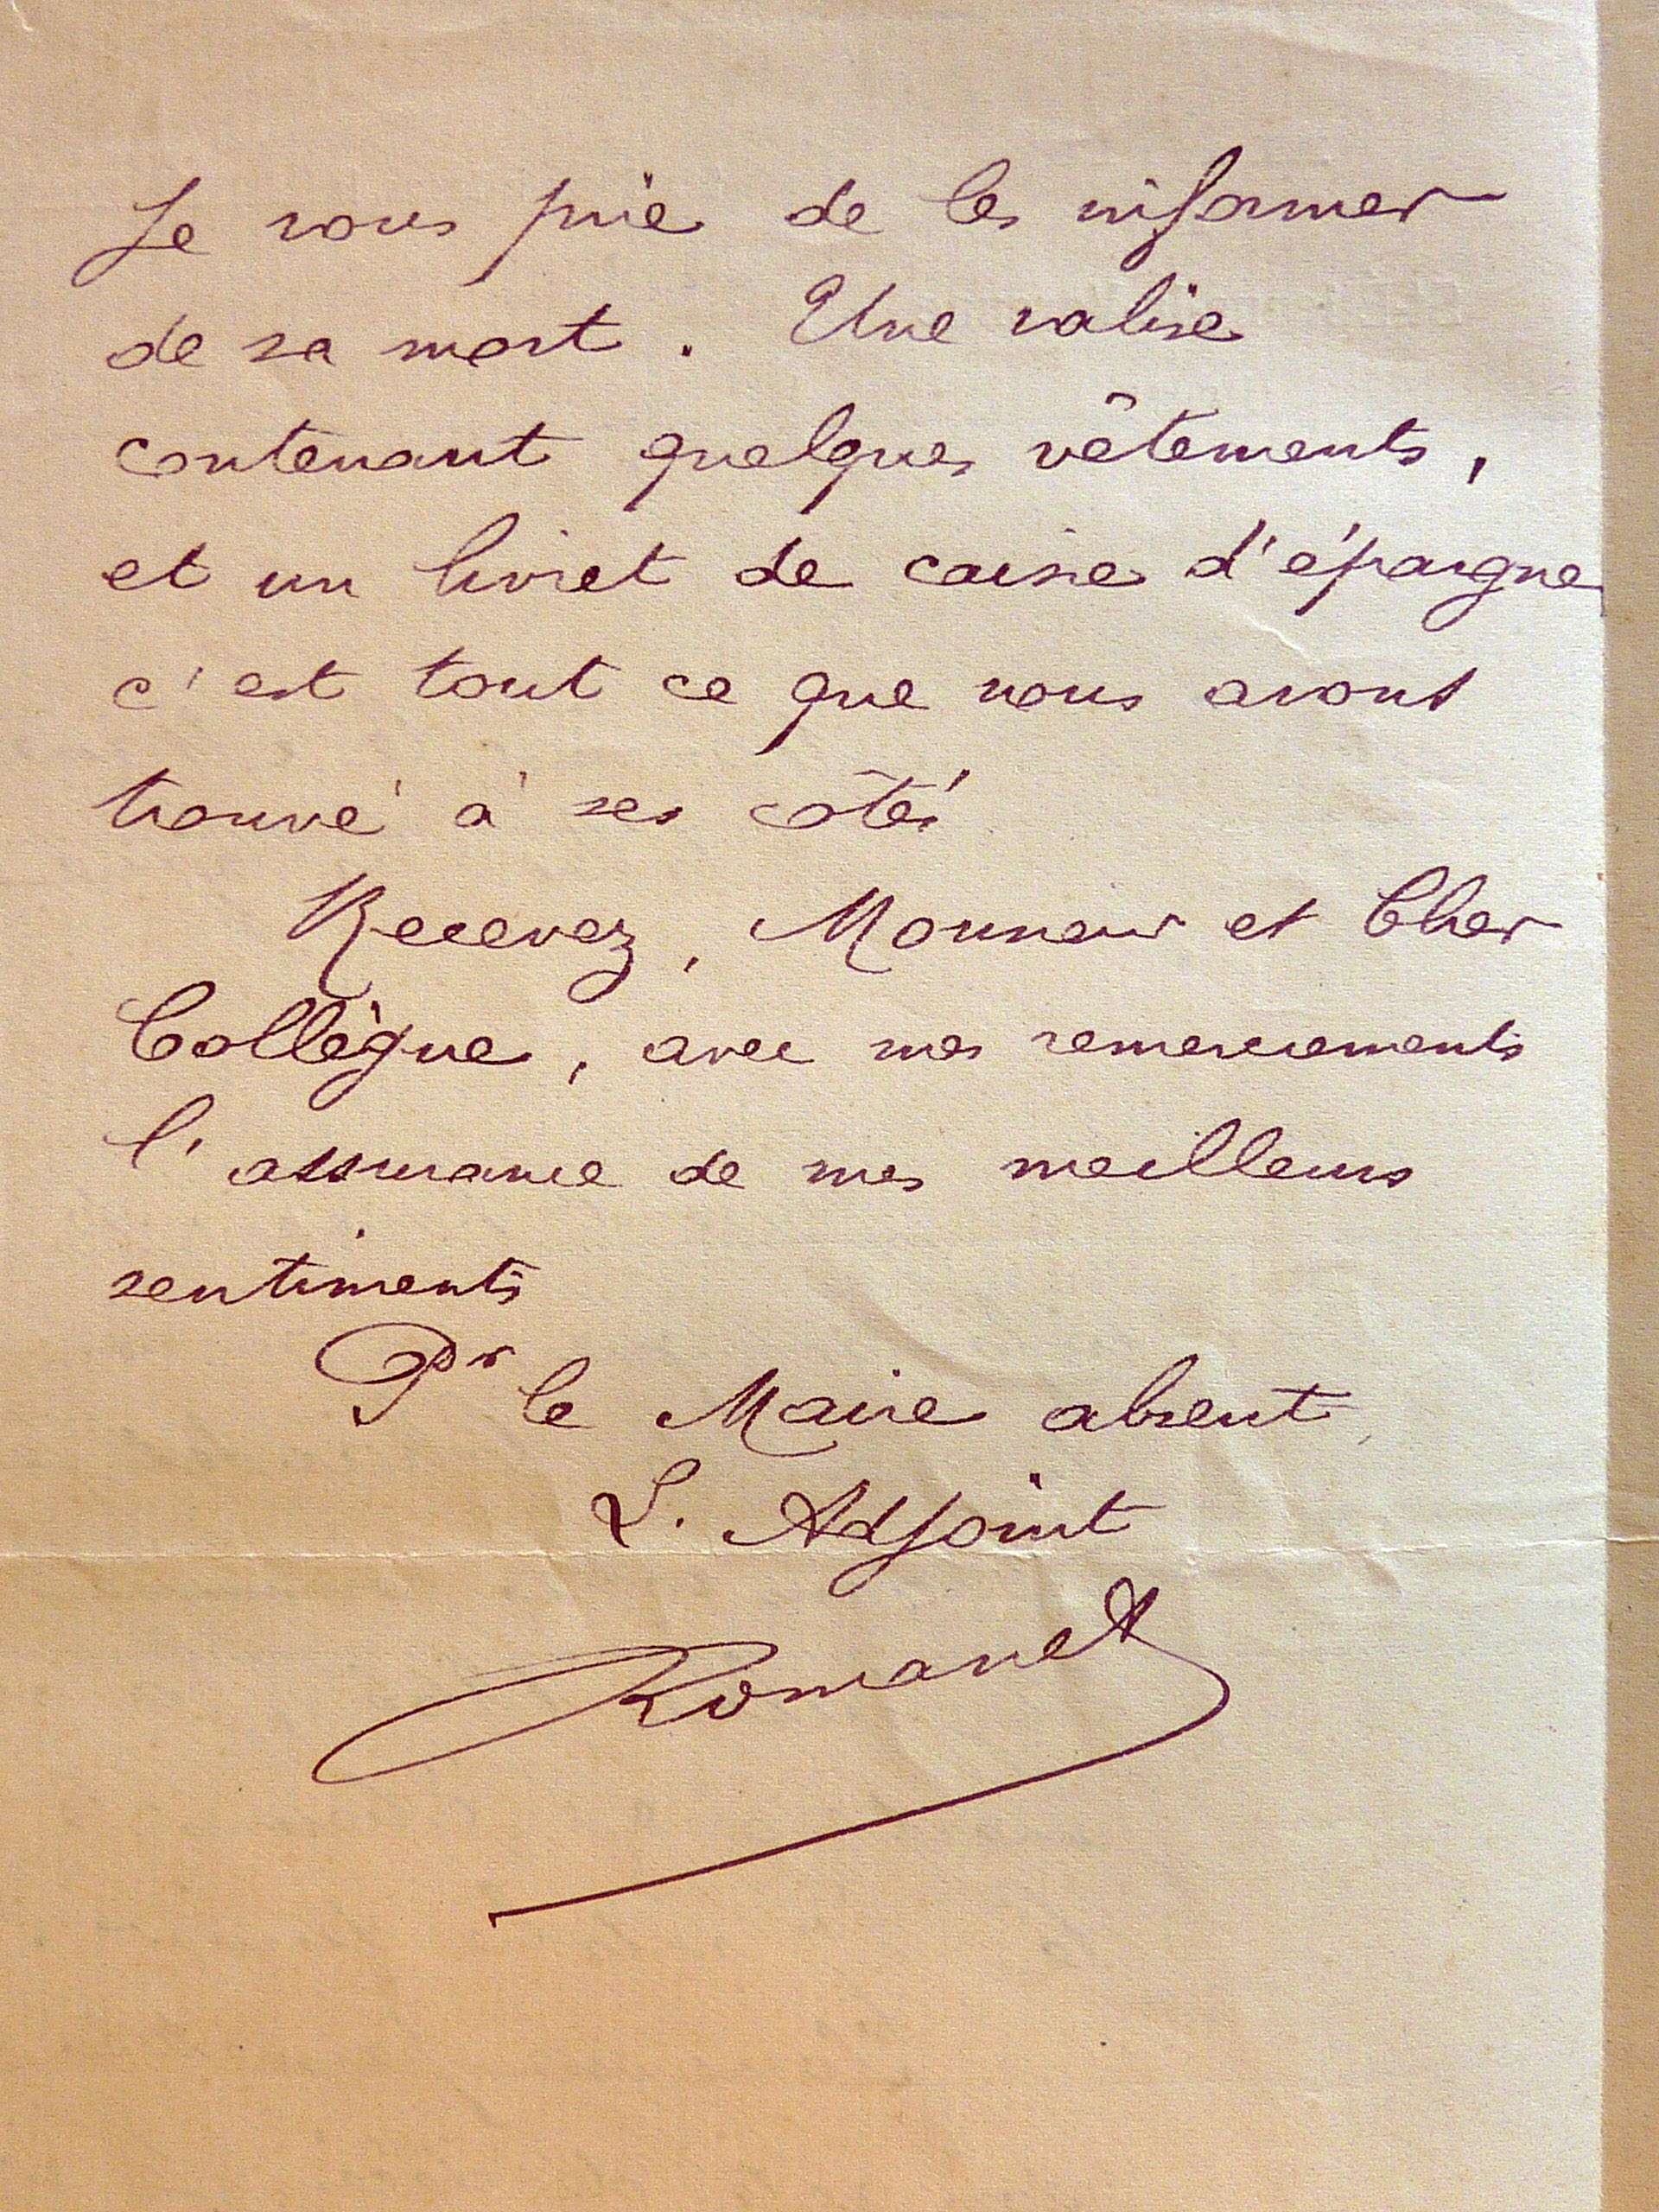 Je vous prie de les informer
de sa mort. Une valise
contenant quelques vêtements,
et un livret de caisse d'épargne
c'est tout ce que nous avons
trouvé à ses côtés
Recevez, Monsieur et Cher
Collègue, avec mes remerciements
l'assurance de mes meilleurs
sentiments
Pr le Maire absent
L. Adjoint
Romanet